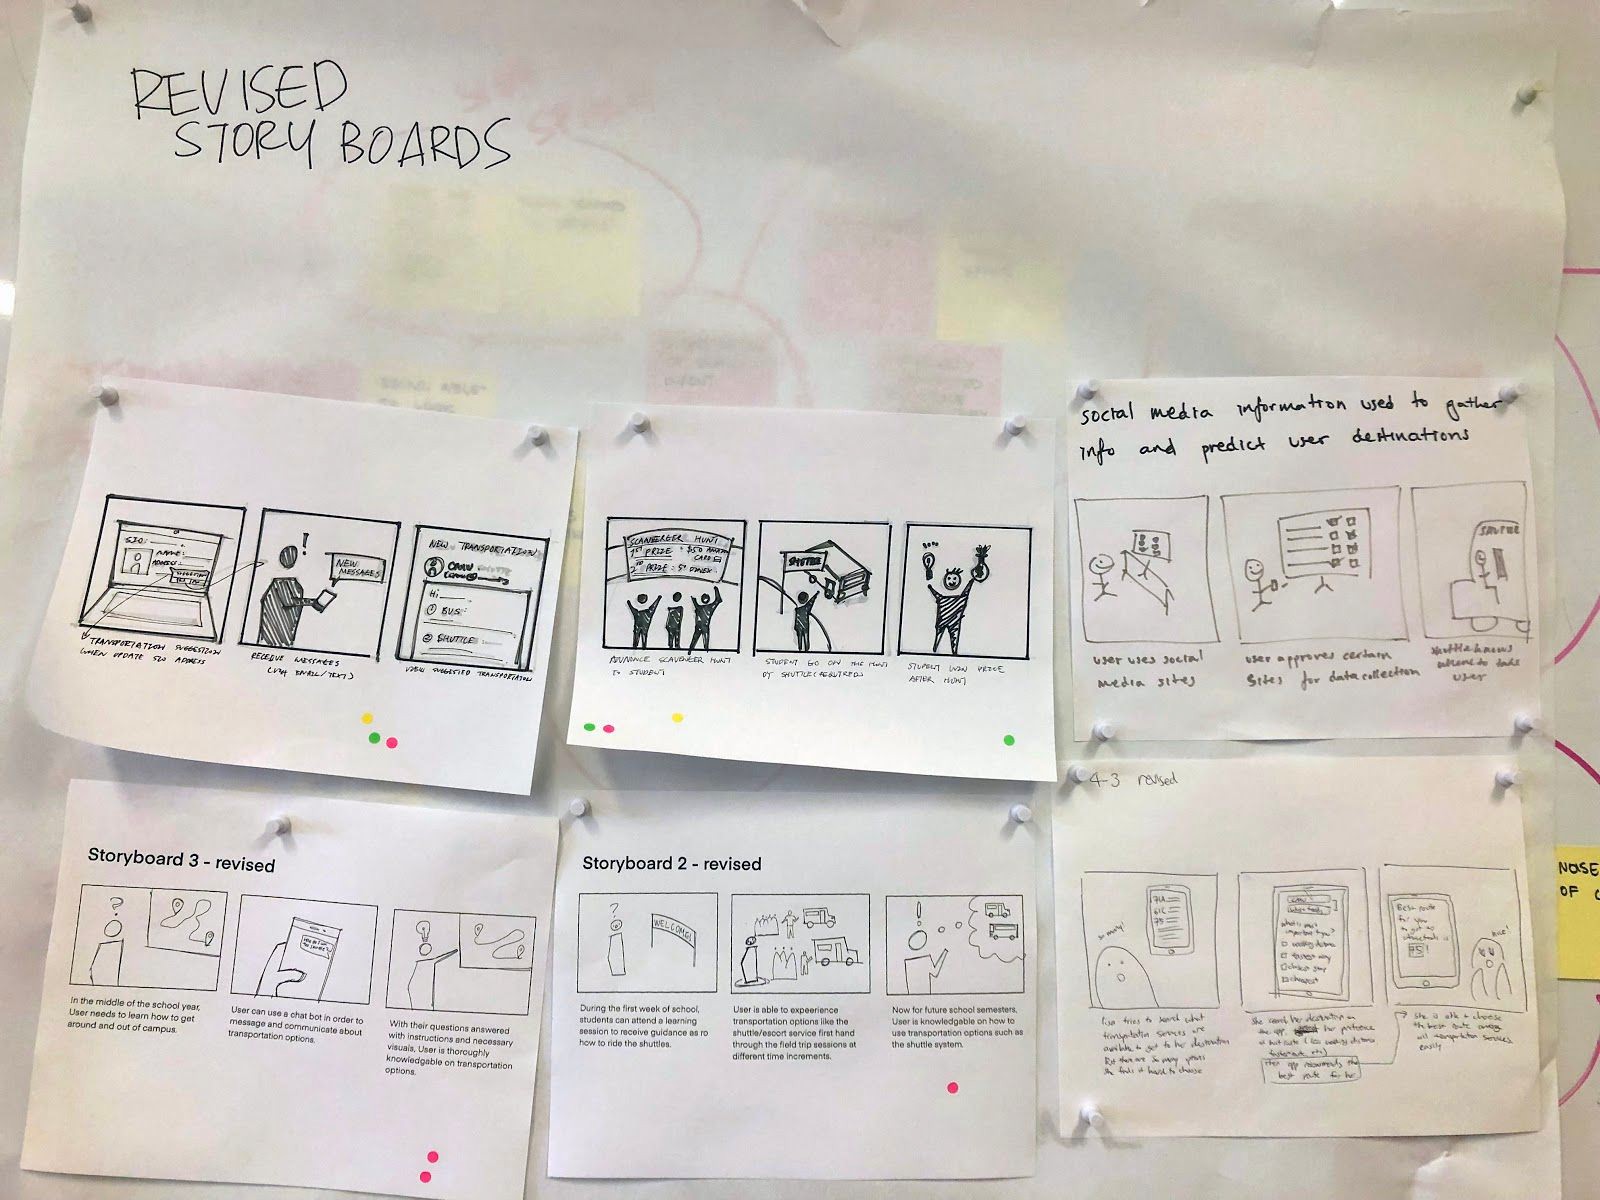 REVISED
STORY BOARDS
SIO:
NAME:
ADDRESS:
TRANSPORTATION SUGGESTION
WHEN UPDATE SIO ADDRESS
!
NEW
MESSAGES
RECEIVE MESSAGES
(VIA EMAIL/TEXT)
NEW TRANSPORTATION
Hi
① BUS
② SHUTTLE
VIEW SUGGESTED TRANSPORTATION
SCANVERGER HUNT
1ST PRIZE : $50 AMAZON
CARD
2ND PRIZE : 5
ANNOUNCE SCAVENGER HUNT
TO STUDENT
SHUTTLE
STUDENT GO ON THE HUNT
BY SHUTTLE (REQUIRED)
STUDENT WIN PRIZE
AFTER HUNT
social media information used to gather
info and predict user destinations
user uses social
media sites
user approves certain
sites for data collection
SHUTTLE
shuttle knows
where to take
user
Storyboard 3 - revised
?
In the middle of the school year,
User needs to learn how to get
around and out of campus.
User can use a chat bot in order to
message and communicate about
transportation options.
With their questions answered
with instructions and necessary
visuals, User is thoroughly
knowledgable on transportation
options.
Storyboard 2 - revised
?
WELCOME!
During the first week of school,
students can attend a learning
session to receive guidance as ro
how to ride the shuttles.
User is able to expeerience
transportation options like the
shuttle/escort service first hand
through the field trip sessions at
different time increments.
!
Now for future school semesters,
User is knowledgable on how to
use transportation options such as
the shuttle system.
4-3 revised
so many!
71A
61C
75
tries to search what
transportation services are
available to get to her destination
But there are so many options
she finds it hard to choose
what is most
important to you?
walking distance
fastest way
closest stop
cheapest
She search her destination on
the app her preference
fastest route etc)
Then app recommends the
best route for her
Best route
for you
to get to
is
75!
nice!
she is able to choose
the best route among
all transportation services
easily
NOSE
OF